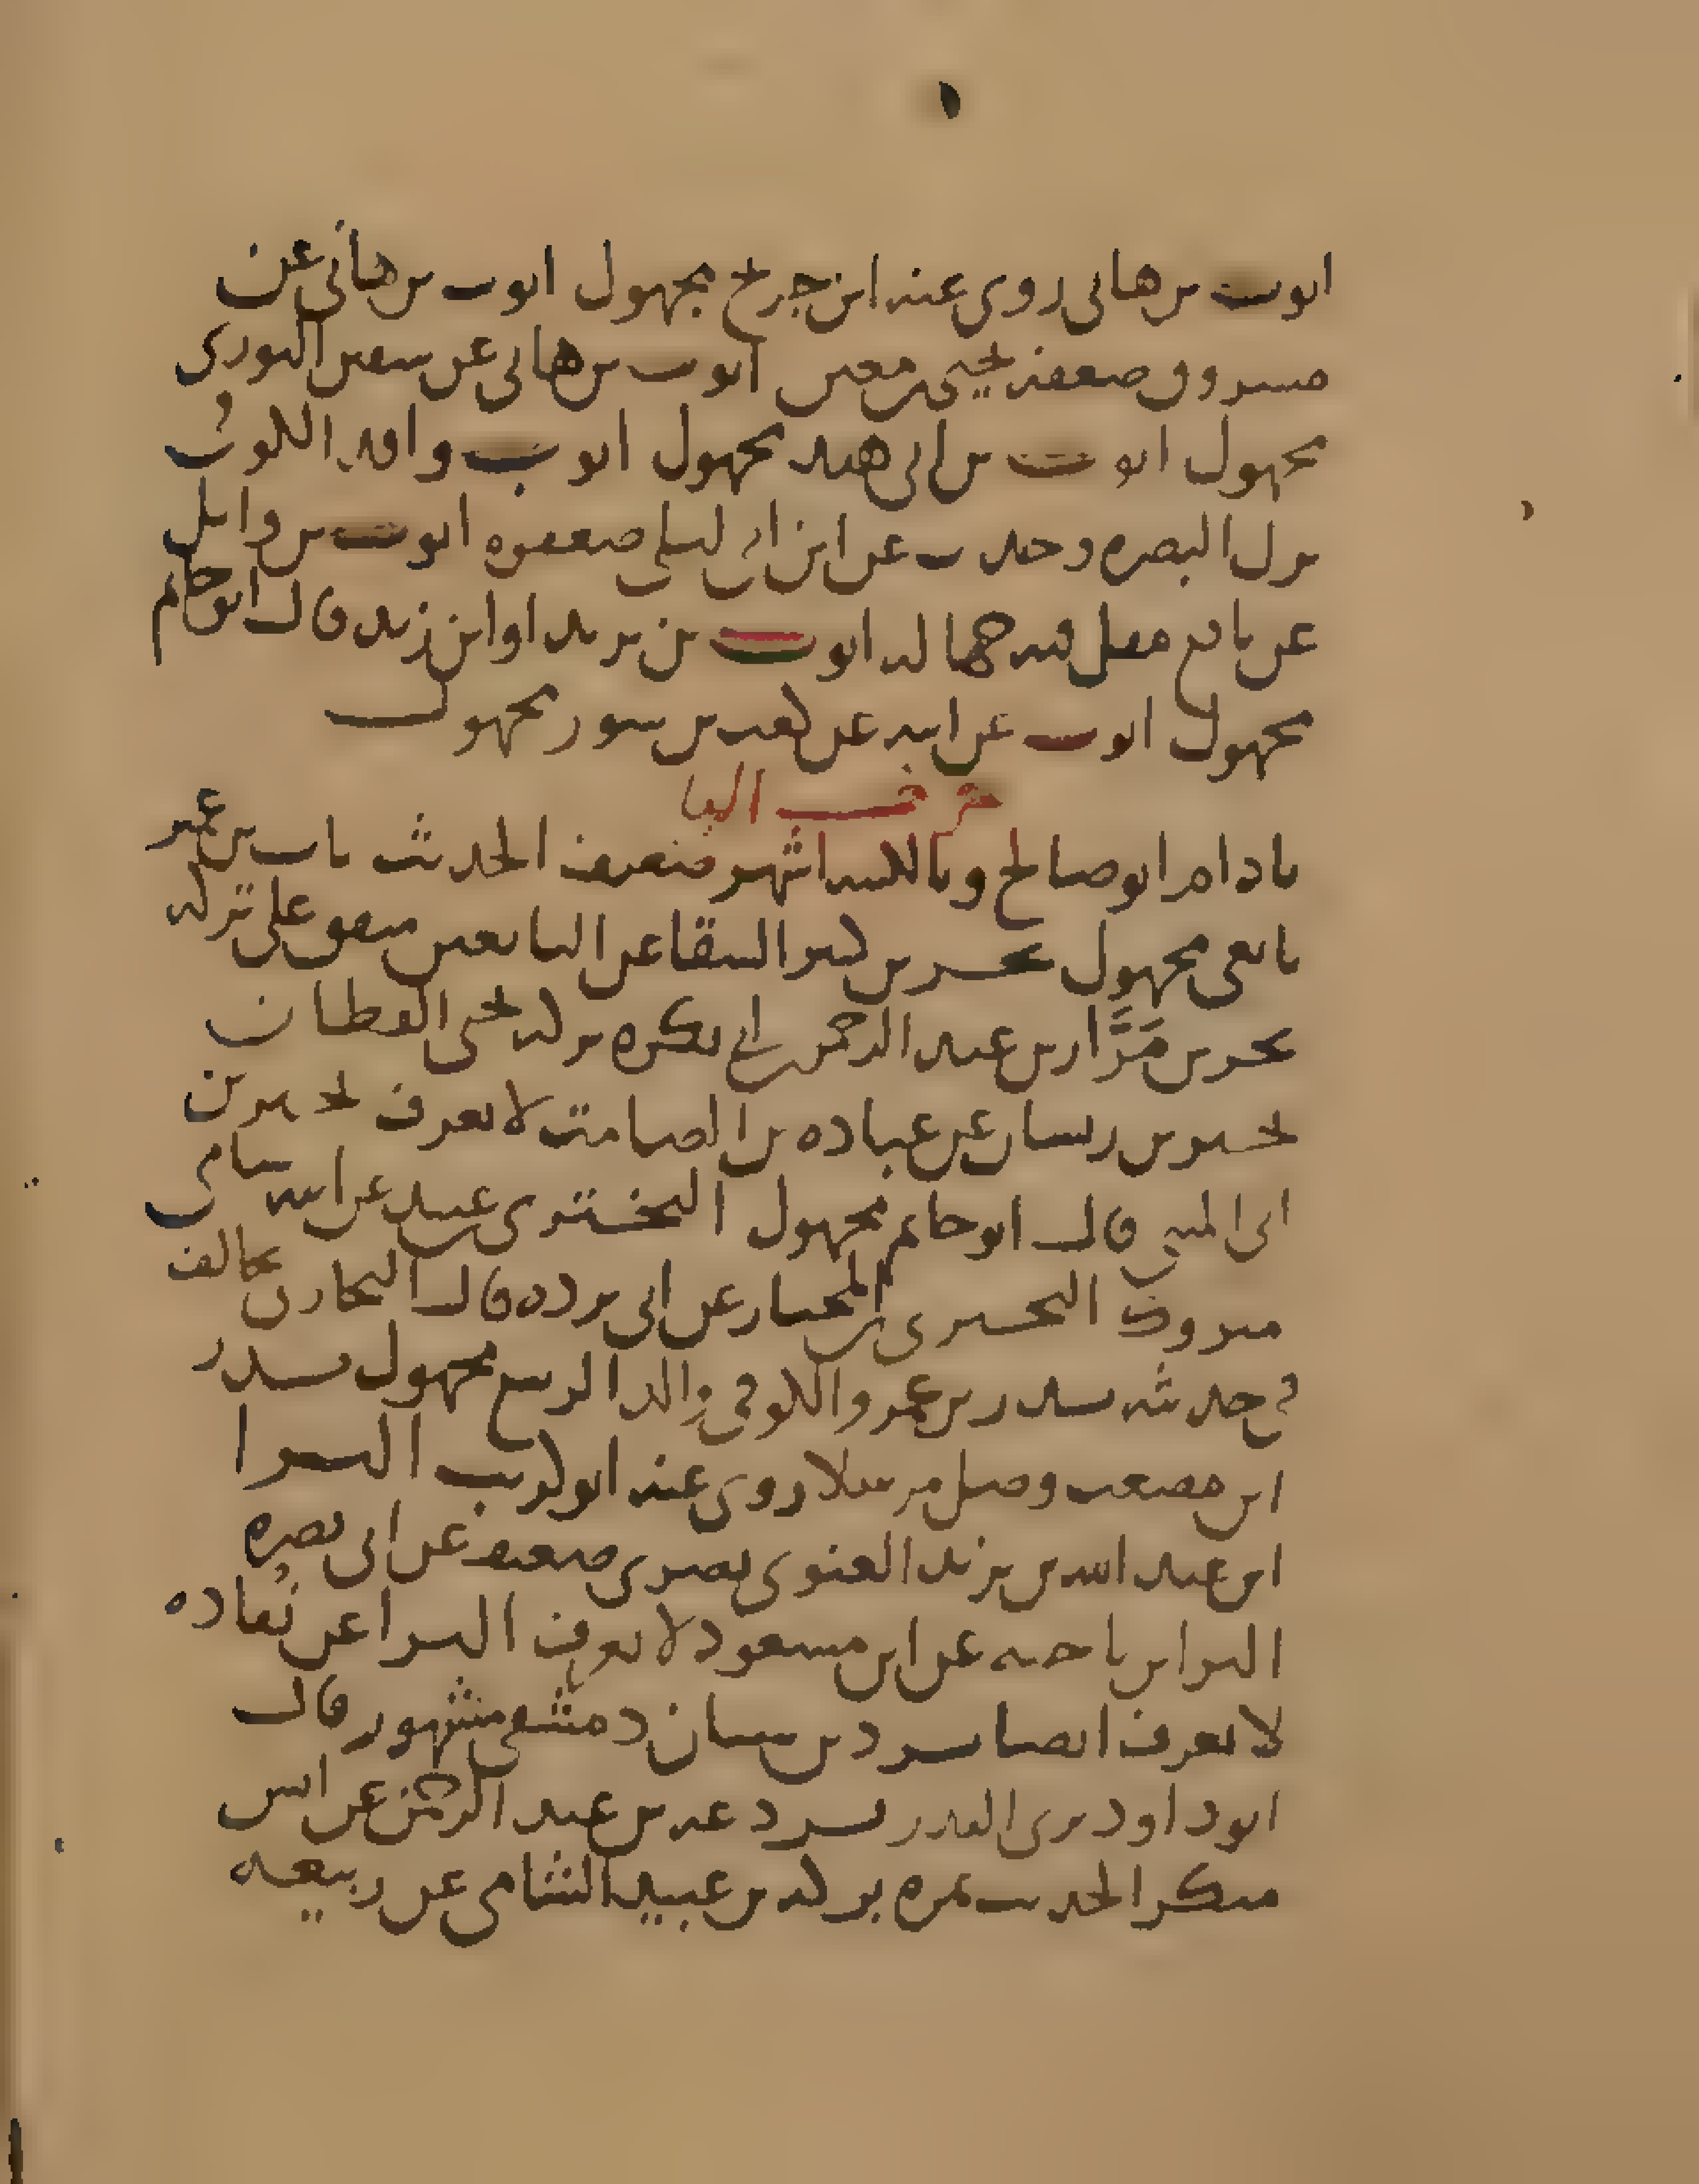 ايوب بن هاني روى عنه ابن جريج مجهول ايوب بن هاني عن
مسروق ضعفه يحيى بن معين ايوب بن هاني عن سفين الثوري
مجهول ايوب بن ابي هند مجهول ايوب بن واقد الكوفي
نزل البصره وحدث عن ابن ابي ليلى ضعفوه ايوب بن وايل
عن نافع مقل فيه جهاله ايوب بن يزيد او ابن زيد قال ابو حاتم
مجهول ايوب عن ابيه عن كعب بن سور مجهول
حرف البا
باذام ابو صالح وبالنون اشهر ضعيف الحديث باب بن عمير
تابعي مجهول بحر بن كنيز السقا عن التابعين متفق على تركه
بحر بن مَرَّار بن عبد الرحمن بن ابي بكره تركه يحيى القطان
بحير بن ريسان عن عباده بن الصامت لا يعرف بحير بن
ابي المثنى قال ابو حاتم مجهول البختري بن عبيد عن ابيه شامي
متروك البختري بن المختار عن ابي برده قال البخاري يخالف
في حديثه بدر بن عمرو الكوفي والد الربيع مجهول بدر
ابن مصعب وصل مرسلا روى عنه ابو كريب البرا
ابن عبد الله بن يزيد الغنوي بصري ضعيف عن ابي نضره
البرا بن ناجيه عن ابن مسعود لا يعرف البرا عن نُقاده
لا يعرف ايضا برد بن سنان دمشقي مشهور قال
ابو داود يرى القدر برذعه بن عبد الرحمن عن انس
منكر الحديث بمره بركه بن عبيد الشامي عن ربيعه